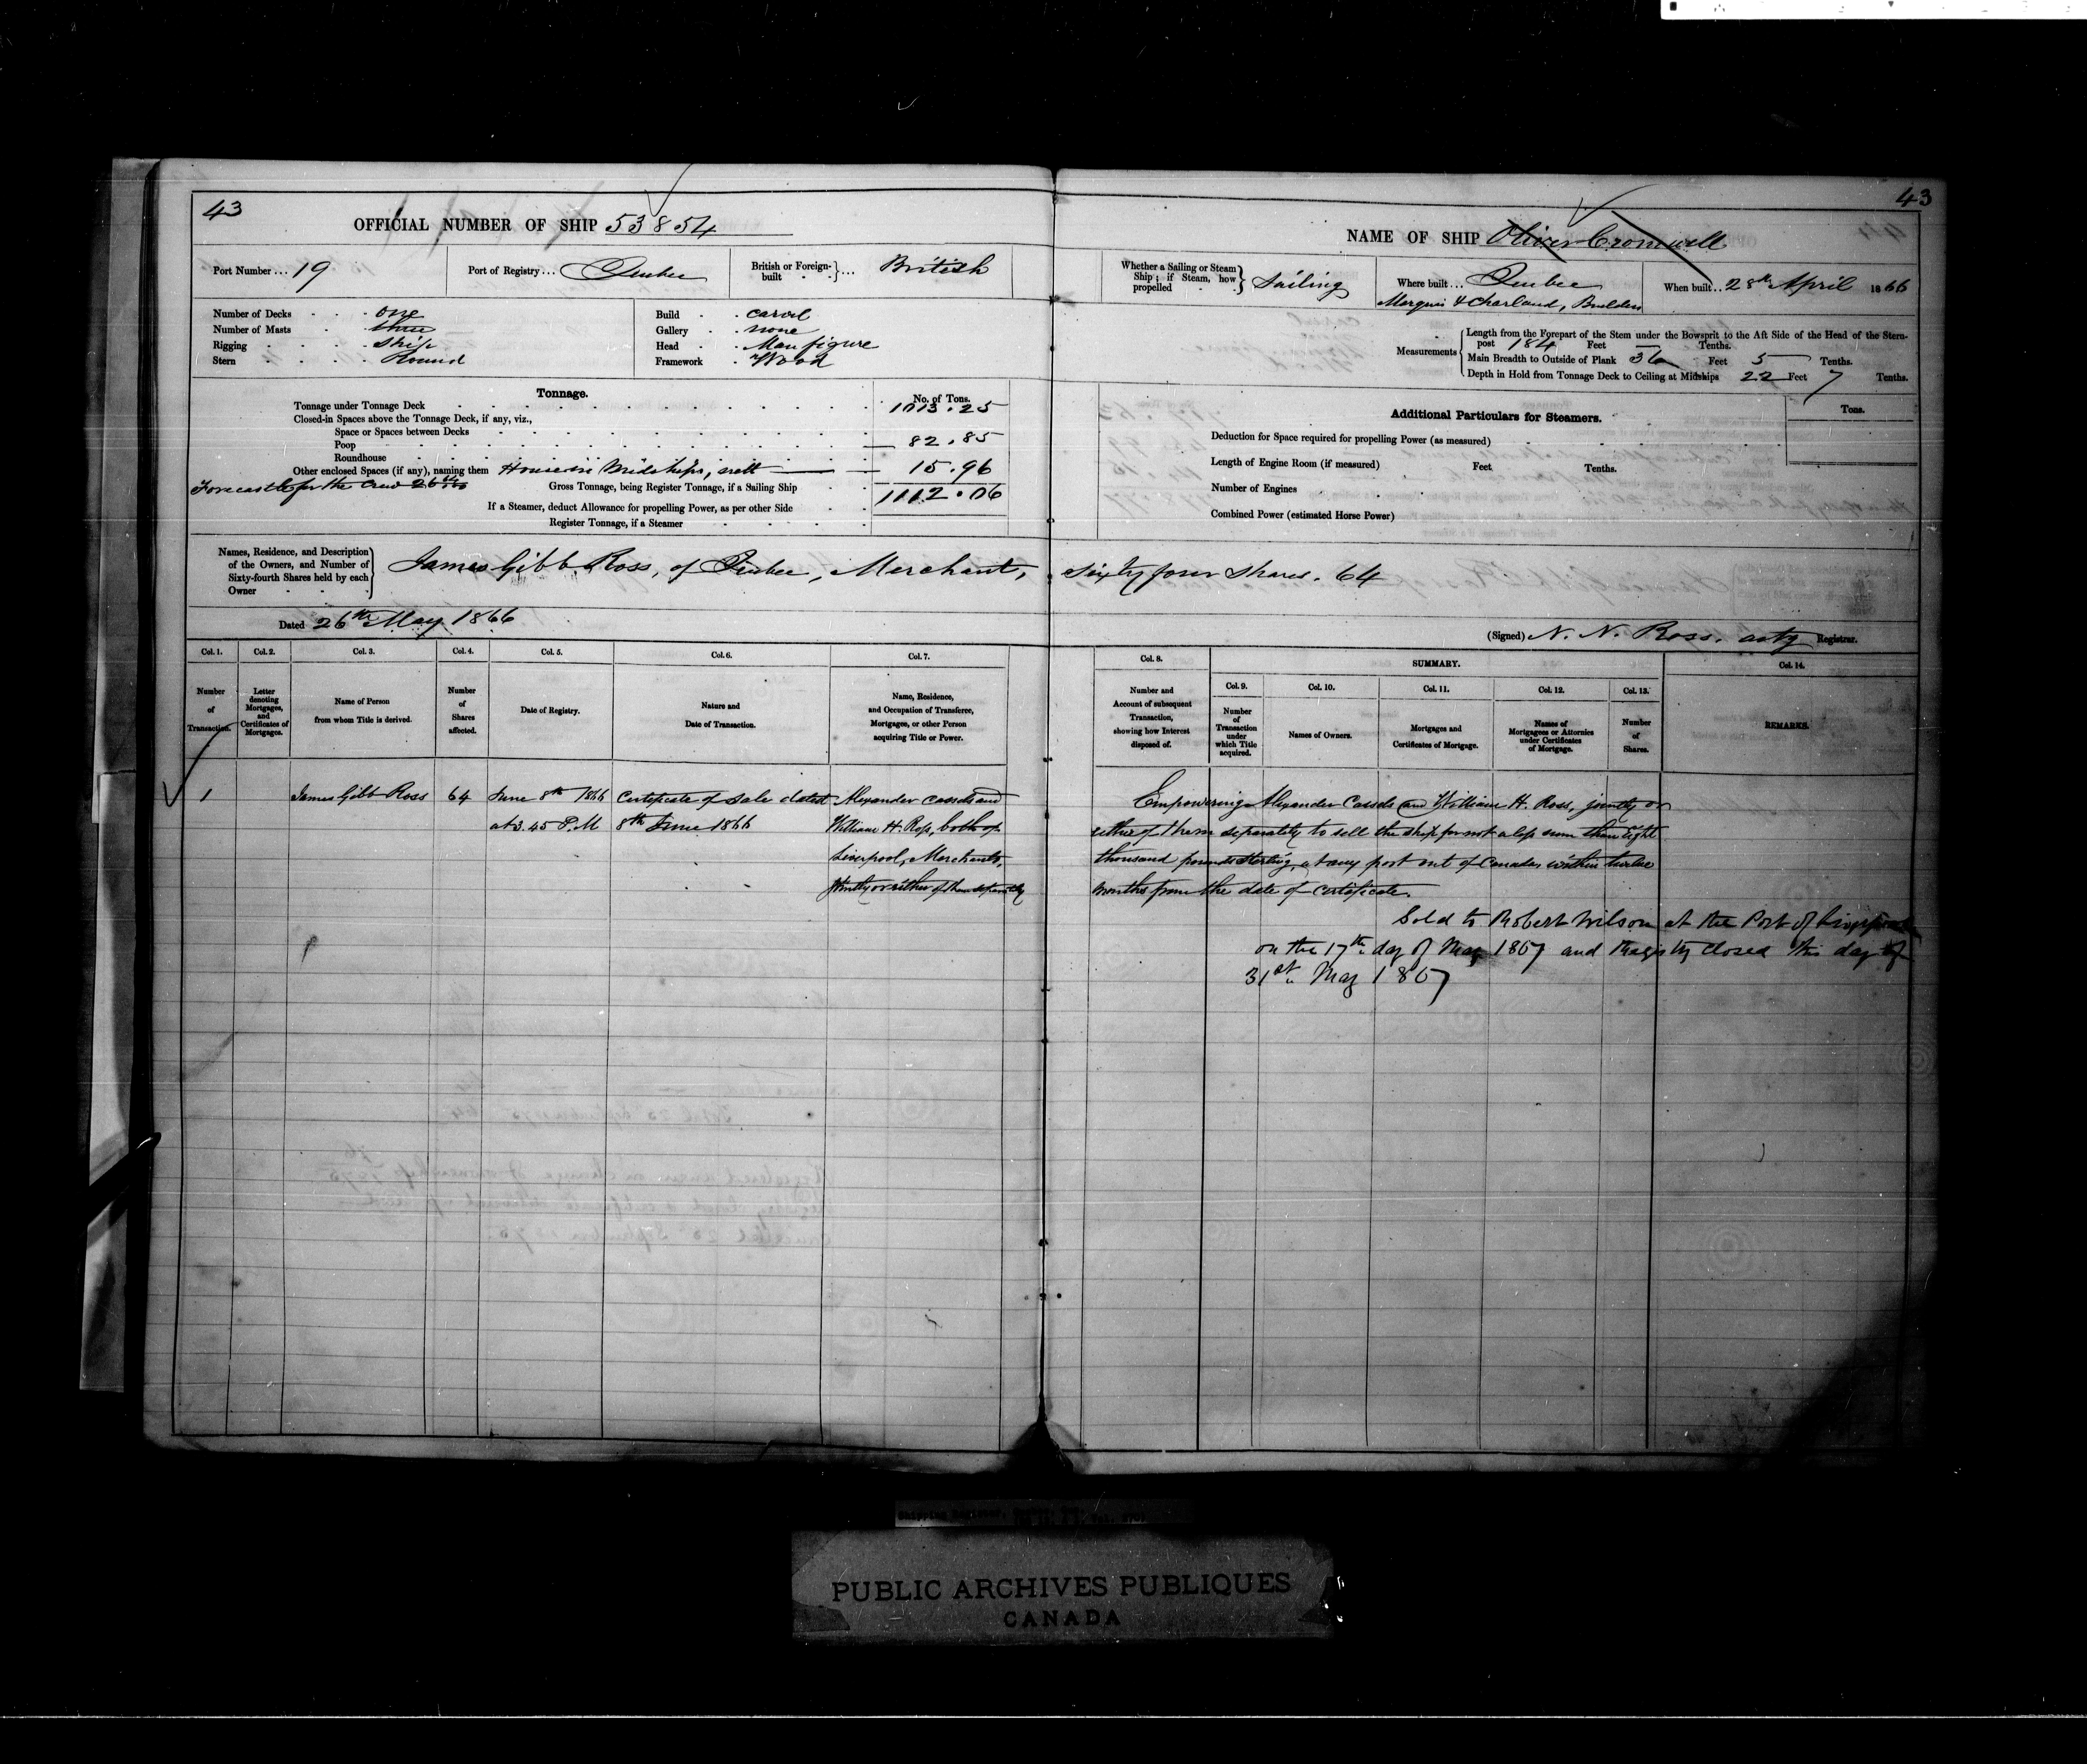 43
OFFICIAL NUMBER OF SHIP 53854
Port Number... 19
Port of Registry... Quebec
British or Foreign-built } ... British
Number of Decks one
Number of Masts three
Rigging ship
Stern Round
Build carvel
Gallery none
Head Man figure
Framework Wood
Tonnage.
No. of Tons.
Tonnage under Tonnage Deck 1013.25
Closed-in Spaces above the Tonnage Deck, if any, viz.,
Space or Spaces between Decks
Poop 82.85
Roundhouse
Other enclosed Spaces (if any), naming them House in Midships, 15.96
Forecastle for the Crew
Gross Tonnage, being Register Tonnage, if a Sailing Ship 1112.06
If a Steamer, deduct Allowance for propelling Power, as per other Side
Register Tonnage, if a Steamer
Names, Residence, and Description of the Owners, and Number of Sixty-fourth Shares held by each Owner } James Gibb Ross, of Quebec, Merchant, sixty four shares. 64
Dated 26th May 1866
43
NAME OF SHIP Oliver Cromwell
Whether a Sailing or Steam Ship; if Steam, how propelled } Sailing
Where built... Quebec
Marquis & Charland, Builders
When built... 28th April 1866
Measurements
Length from the Forepart of the Stem under the Bowsprit to the Aft Side of the Head of the Stern-
post 184 Feet Tenths.
Main Breadth to Outside of Plank 36 Feet 5 Tenths.
Depth in Hold from Tonnage Deck to Ceiling at Midships 22 Feet 7 Tenths.
Additional Particulars for Steamers.
Tons.
Deduction for Space required for propelling Power (as measured)
Length of Engine Room (if measured) Feet Tenths.
Number of Engines
Combined Power (estimated Horse Power)
(Signed) N. N. Ross. actg Registrar.
Col. 1. Col. 2. Col. 3. Col. 4. Col. 5. Col. 6. Col. 7.
Number of Transaction.
Letter denoting Mortgages, and Certificates of Mortgages.
Name of Person from whom Title is derived.
Number of Shares affected.
Date of Registry.
Nature and Date of Transaction.
Name, Residence, and Occupation of Transferee, Mortgagee, or other Person acquiring Title or Power.
Col. 8.
Number and Account of subsequent Transaction, showing how Interest disposed of.
SUMMARY.
Col. 9. Col. 10. Col. 11. Col. 12. Col. 13.
Number of Transaction under which Title acquired.
Names of Owners.
Mortgages and Certificates of Mortgage.
Names of Mortgagees or Attornies under Certificates of Mortgage.
Number of Shares.
Col. 14.
REMARKS.
1 James Gibb Ross 64 June 8th 1866 Certificate of Sale dated Alexander Cassels and
at 3.45 P.M 8th June 1866 William H. Ross, both of
Liverpool, Merchants,
jointly or either of them separately
Empowering Alexander Cassels and William H. Ross, jointly or
either of them separately to sell the ship for not a less sum than Eight
thousand pounds sterling, at any port out of Canada within twelve
months from the date of certificate.
Sold to Robert Wilson at the Port of Liverpool
on the 17th day of May 1867 and Registry Closed this day of
31st May 1867
PUBLIC ARCHIVES PUBLIQUES
CANADA